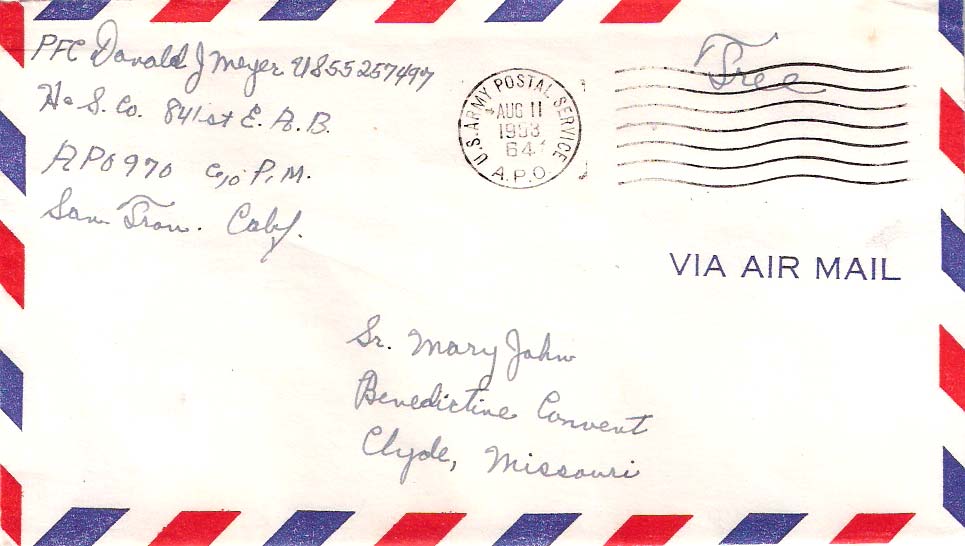 PFC Donald J Meyer US55257497
H & S. Co. 841st E. A. B.
APO 970 c/o P. M.
San Fran. Calif.
U.S. ARMY POSTAL SERVICE
AUG 11
1953
641
A.P.O.
Free
VIA AIR MAIL
Sr. Mary John
Benedictine Convent
Clyde, Missouri